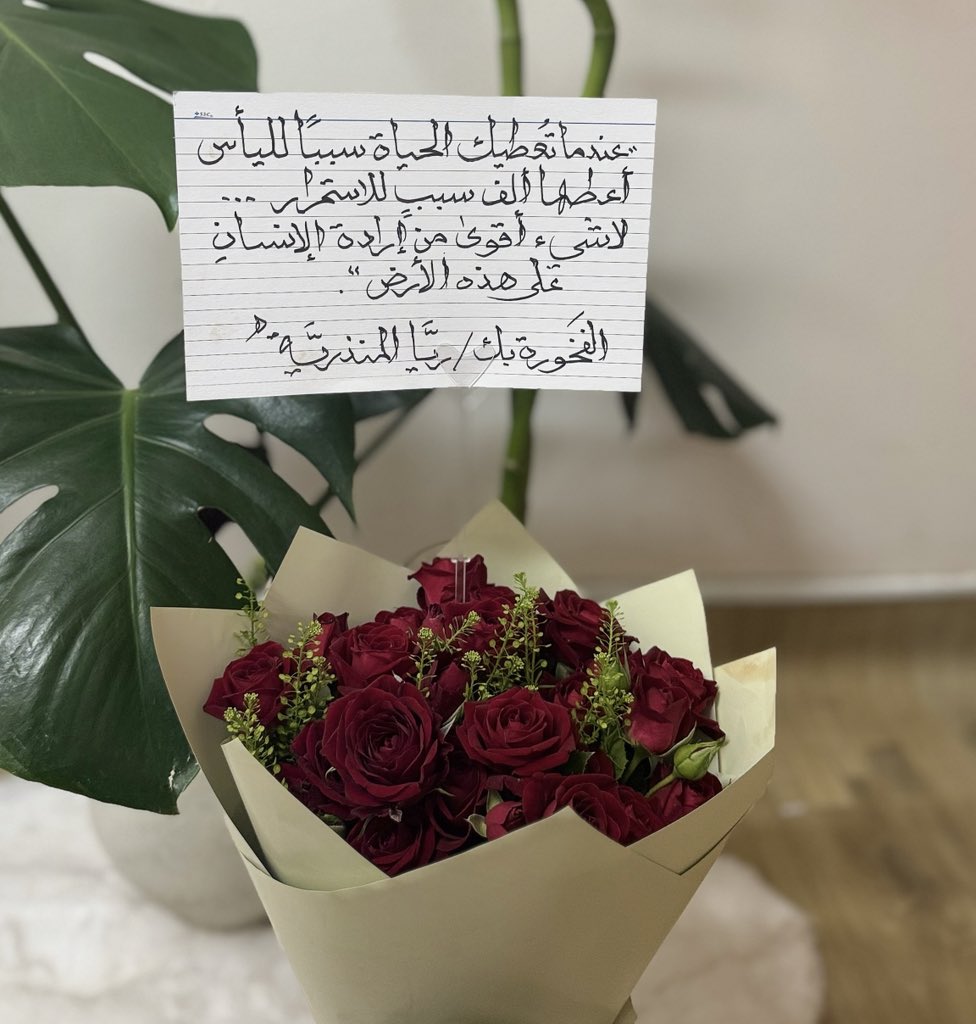 "عندما تُعطيك الحياة سببًا لليأس
أعطها ألف سبب للاستمرار ...
لا شيء أقوى من إرادة الإنسان
على هذه الأرض".
الفَخورة بك / ريَّا المنذريَّة